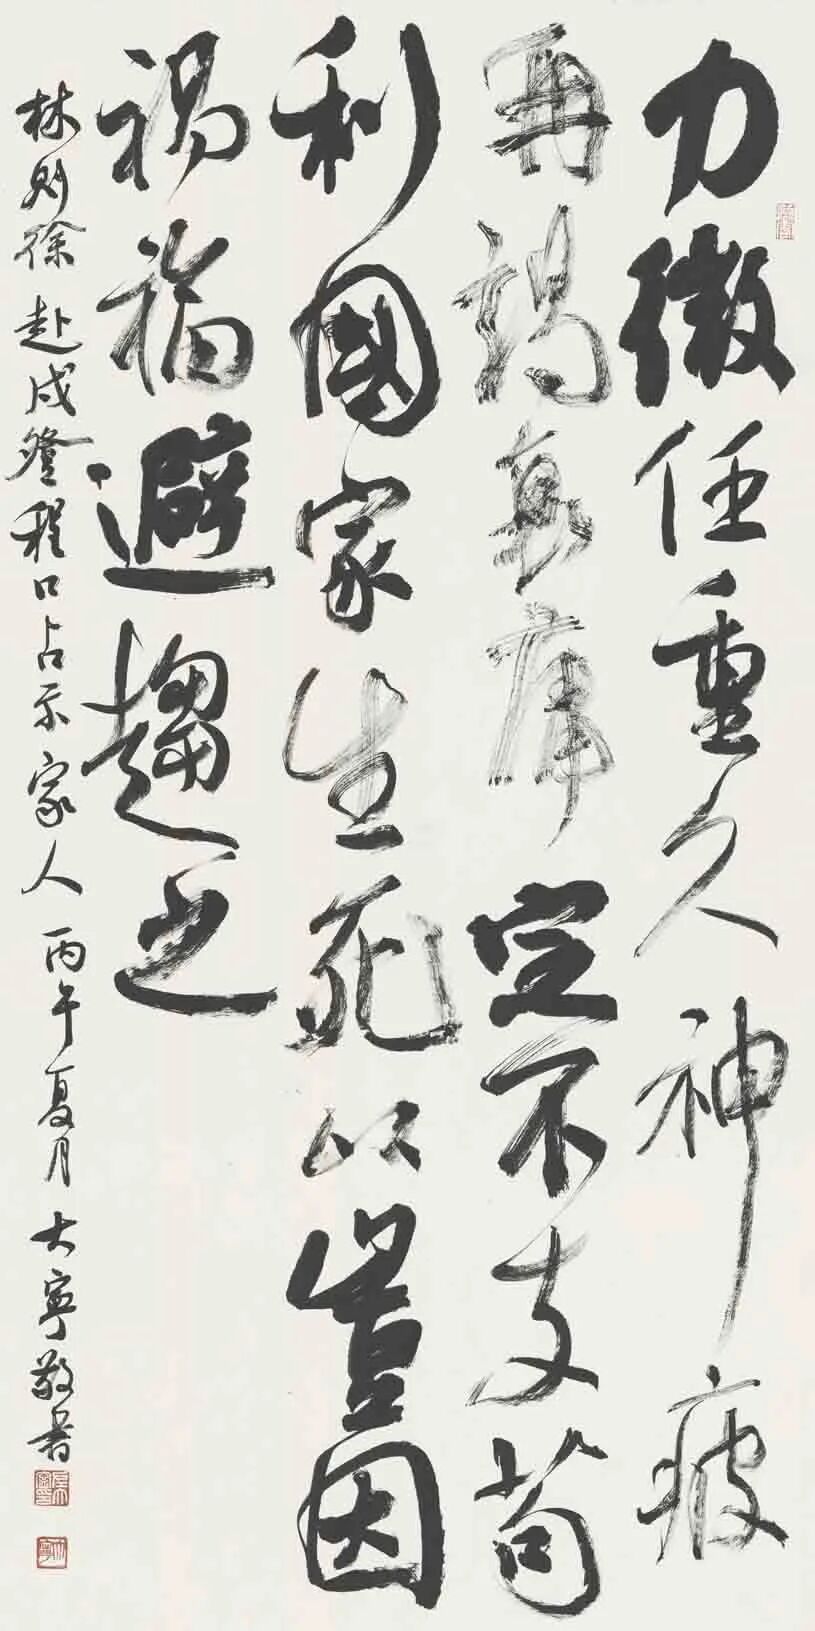 力微任重久神疲
再竭衰庸定不支苟
利國家生死以豈因
禍福避趨之
林则徐赴戍登程口占示家人丙午夏月大寧敬書